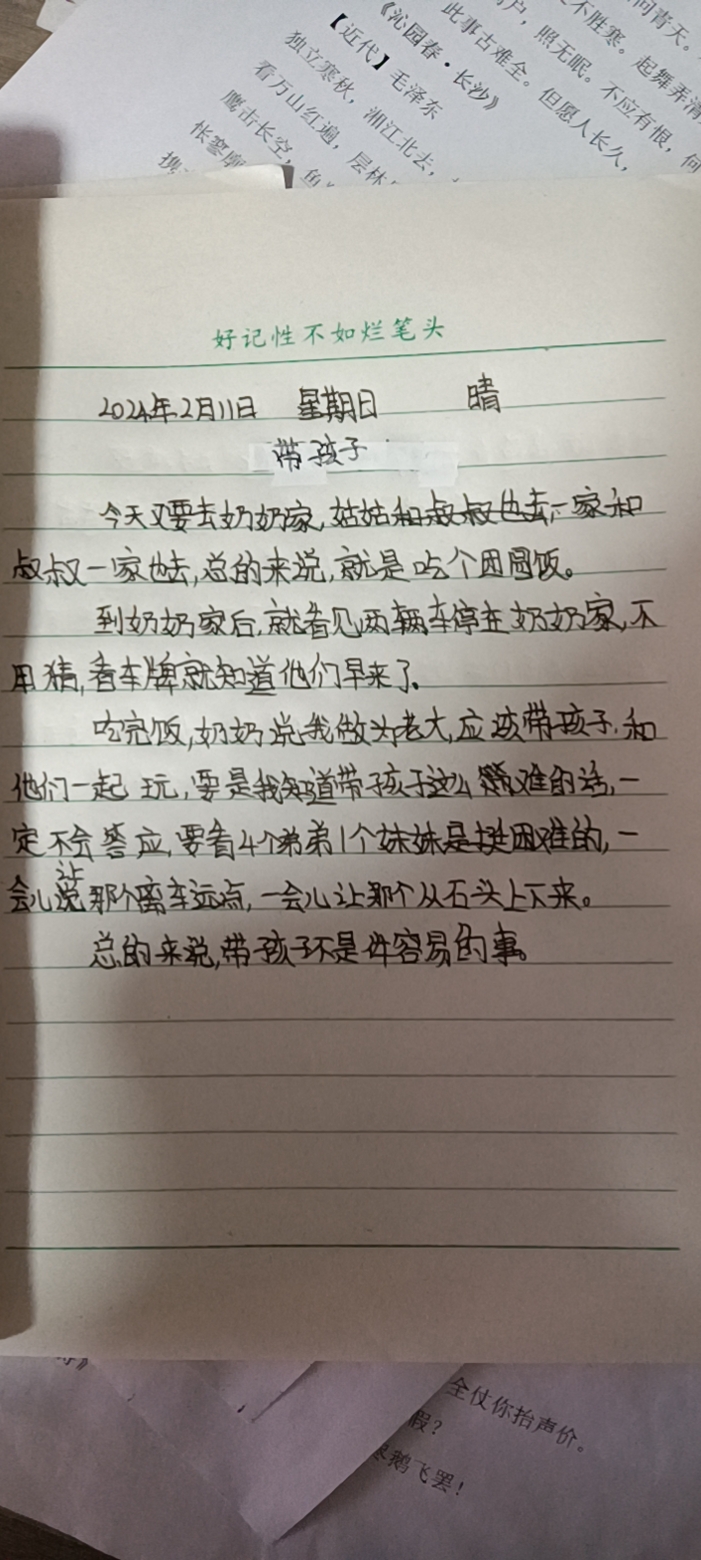 问青天。
不胜寒。起舞弄清
户，照无眠。不应有恨，何
此事古难全。但愿人长久，
《沁园春·长沙》
【近代】毛泽东
独立寒秋，湘江北去，
看万山红遍，层林
鹰击长空，鱼
怅寥廓
携
好记性不如烂笔头
2024年2月11日 星期日 晴
带孩子
今天又要去奶奶家,姑姑和叔叔也去,一家和
叔叔一家也去,总的来说,就是吃个团圆饭。
到奶奶家后,就看见两辆车停在奶奶家,不
用猜,看车牌就知道他们早来了。
吃完饭,奶奶说我做为老大,应该带孩子,和
他们一起玩,要是我知道带孩子这么难的话,一
定不会答应,要看4个弟弟1个妹妹是挺困难的,一
会儿让那个离车远点,一会儿让那个从石头上下来。
总的来说,带孩子不是件容易的事。
全仗你抬声价。
假？
鹅飞罢！